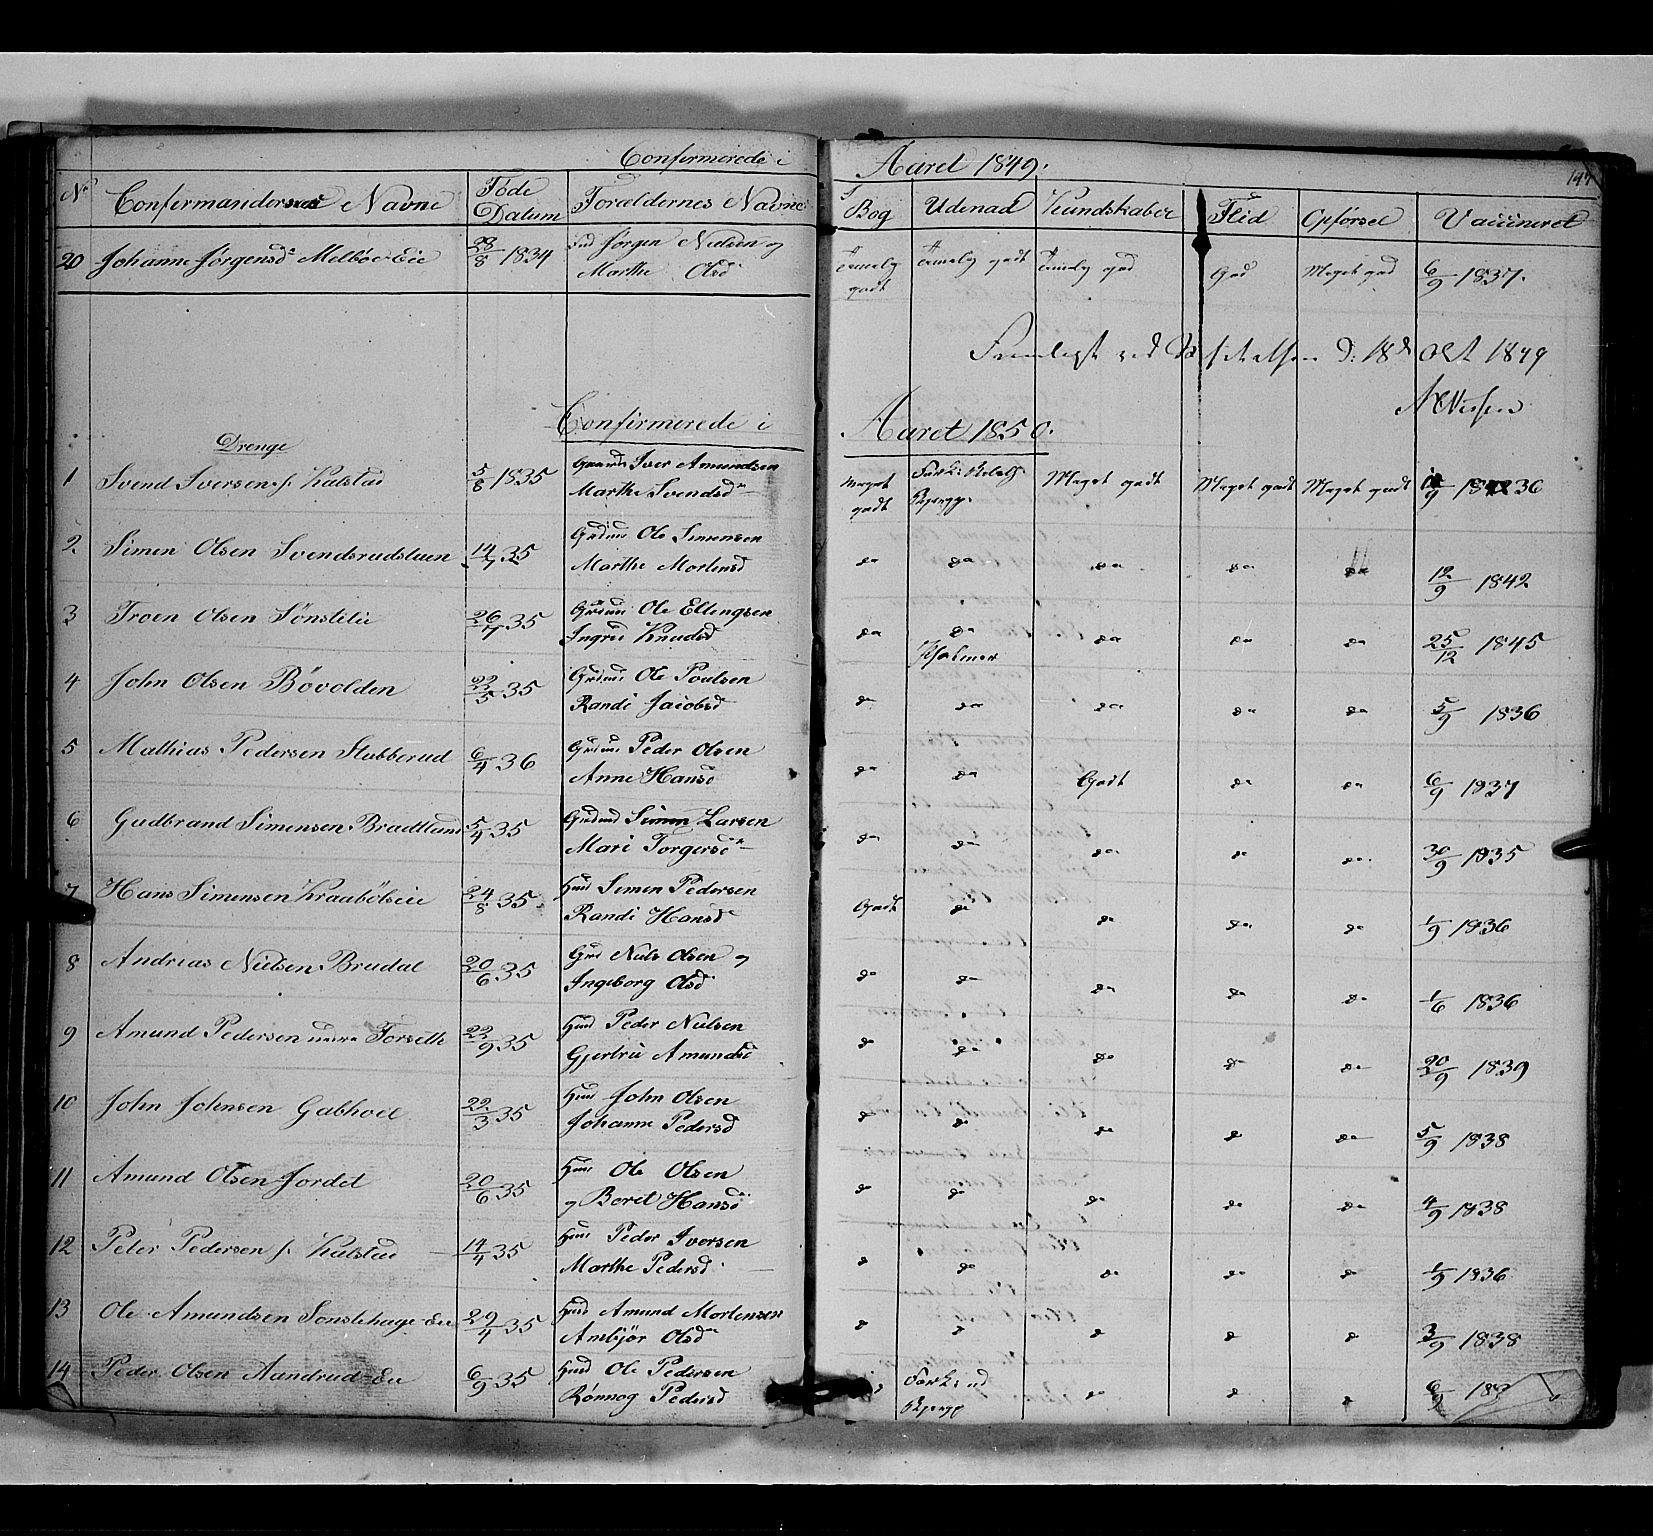 Confirmerede i Aaret 1849. 147
No Confirmandernes Navne Føde Datum Forældernes Navne Bog Udenad Kundskaber Flid Opførsel Vaccineret
20 Johanne Jørgensd Melbøe Eie 28/8 1834 Jørgen Nielsen og Marthe Olsd Temelig godt Temelig godt Temelig god God Meget god 6/9 1837.
Fremlagt ved d: 18d Oct 1849
Confirmerede i Aaret 1850.
Drenge
1 Svend Iversen Kalstad 5/8 1835 Iver Amundsen Marthe Svendsd Meget godt Meget godt Meget godt Meget godt 36
2. Simen Olsen Svendsrudstuen 14/7 35 Ole Simensen Marthe Mortensd do do do do do 12/9 1842
3 Troen Olsen Sønstelie 26/7 35 Ole Ellengsen Ingrie Knudsd do do Psalmer do do do 25/12 1845
4 John Olsen Bøvolden 22/5 35 Ole Poulsen Randi Jacobsd do do do do do 5/9 1836
5 Mathias Pedersen Stubberud 6/4 36 Peder Olsen Anne Hansd do do Godt do do 6/9 1837
6 Gudbrand Simensen Bradtland 5/4 35 Simen Larsen Mari Torgersd do do do do do 30/9 1835
7 Hans Simensen Kraabølseie 24/8 35 Simen Pedersen Randi Hansd Godt do do do do 1/9 1836
8 Andreas Nielsen Brudal 20/6 35 Niels Olsen og Ingeborg Olsd do do do do do 1/6 1836
9 Amund Pedersen Forseth 22/9 35 Peder Nielsen Gjertrü Amundsd do do do do do 20/9 1839
10 John Johnsen Gabhoel 22/3 35 John Olsen Johanne Pedersd do do do do do 5/9 1838
11 Amund Olsen Jordet 20/6 35 Ole Olsen og Beret Hansd do do do do do 4/9 1838
12 Peter Pedersen Kalstad 14/4 35 Peder Iversen Marthe Pedersd do do do do do 1/9 1836
13 Ole Amundsen Sonstehage Eie 29/4 35 Amund Mortensen Ambjør Olsd do do do do do 3/9 1838
14 Peder Olsen Aandrud Eie 6/9 35 Ole Pedersen Rønnog Pedersd do do do 6/9